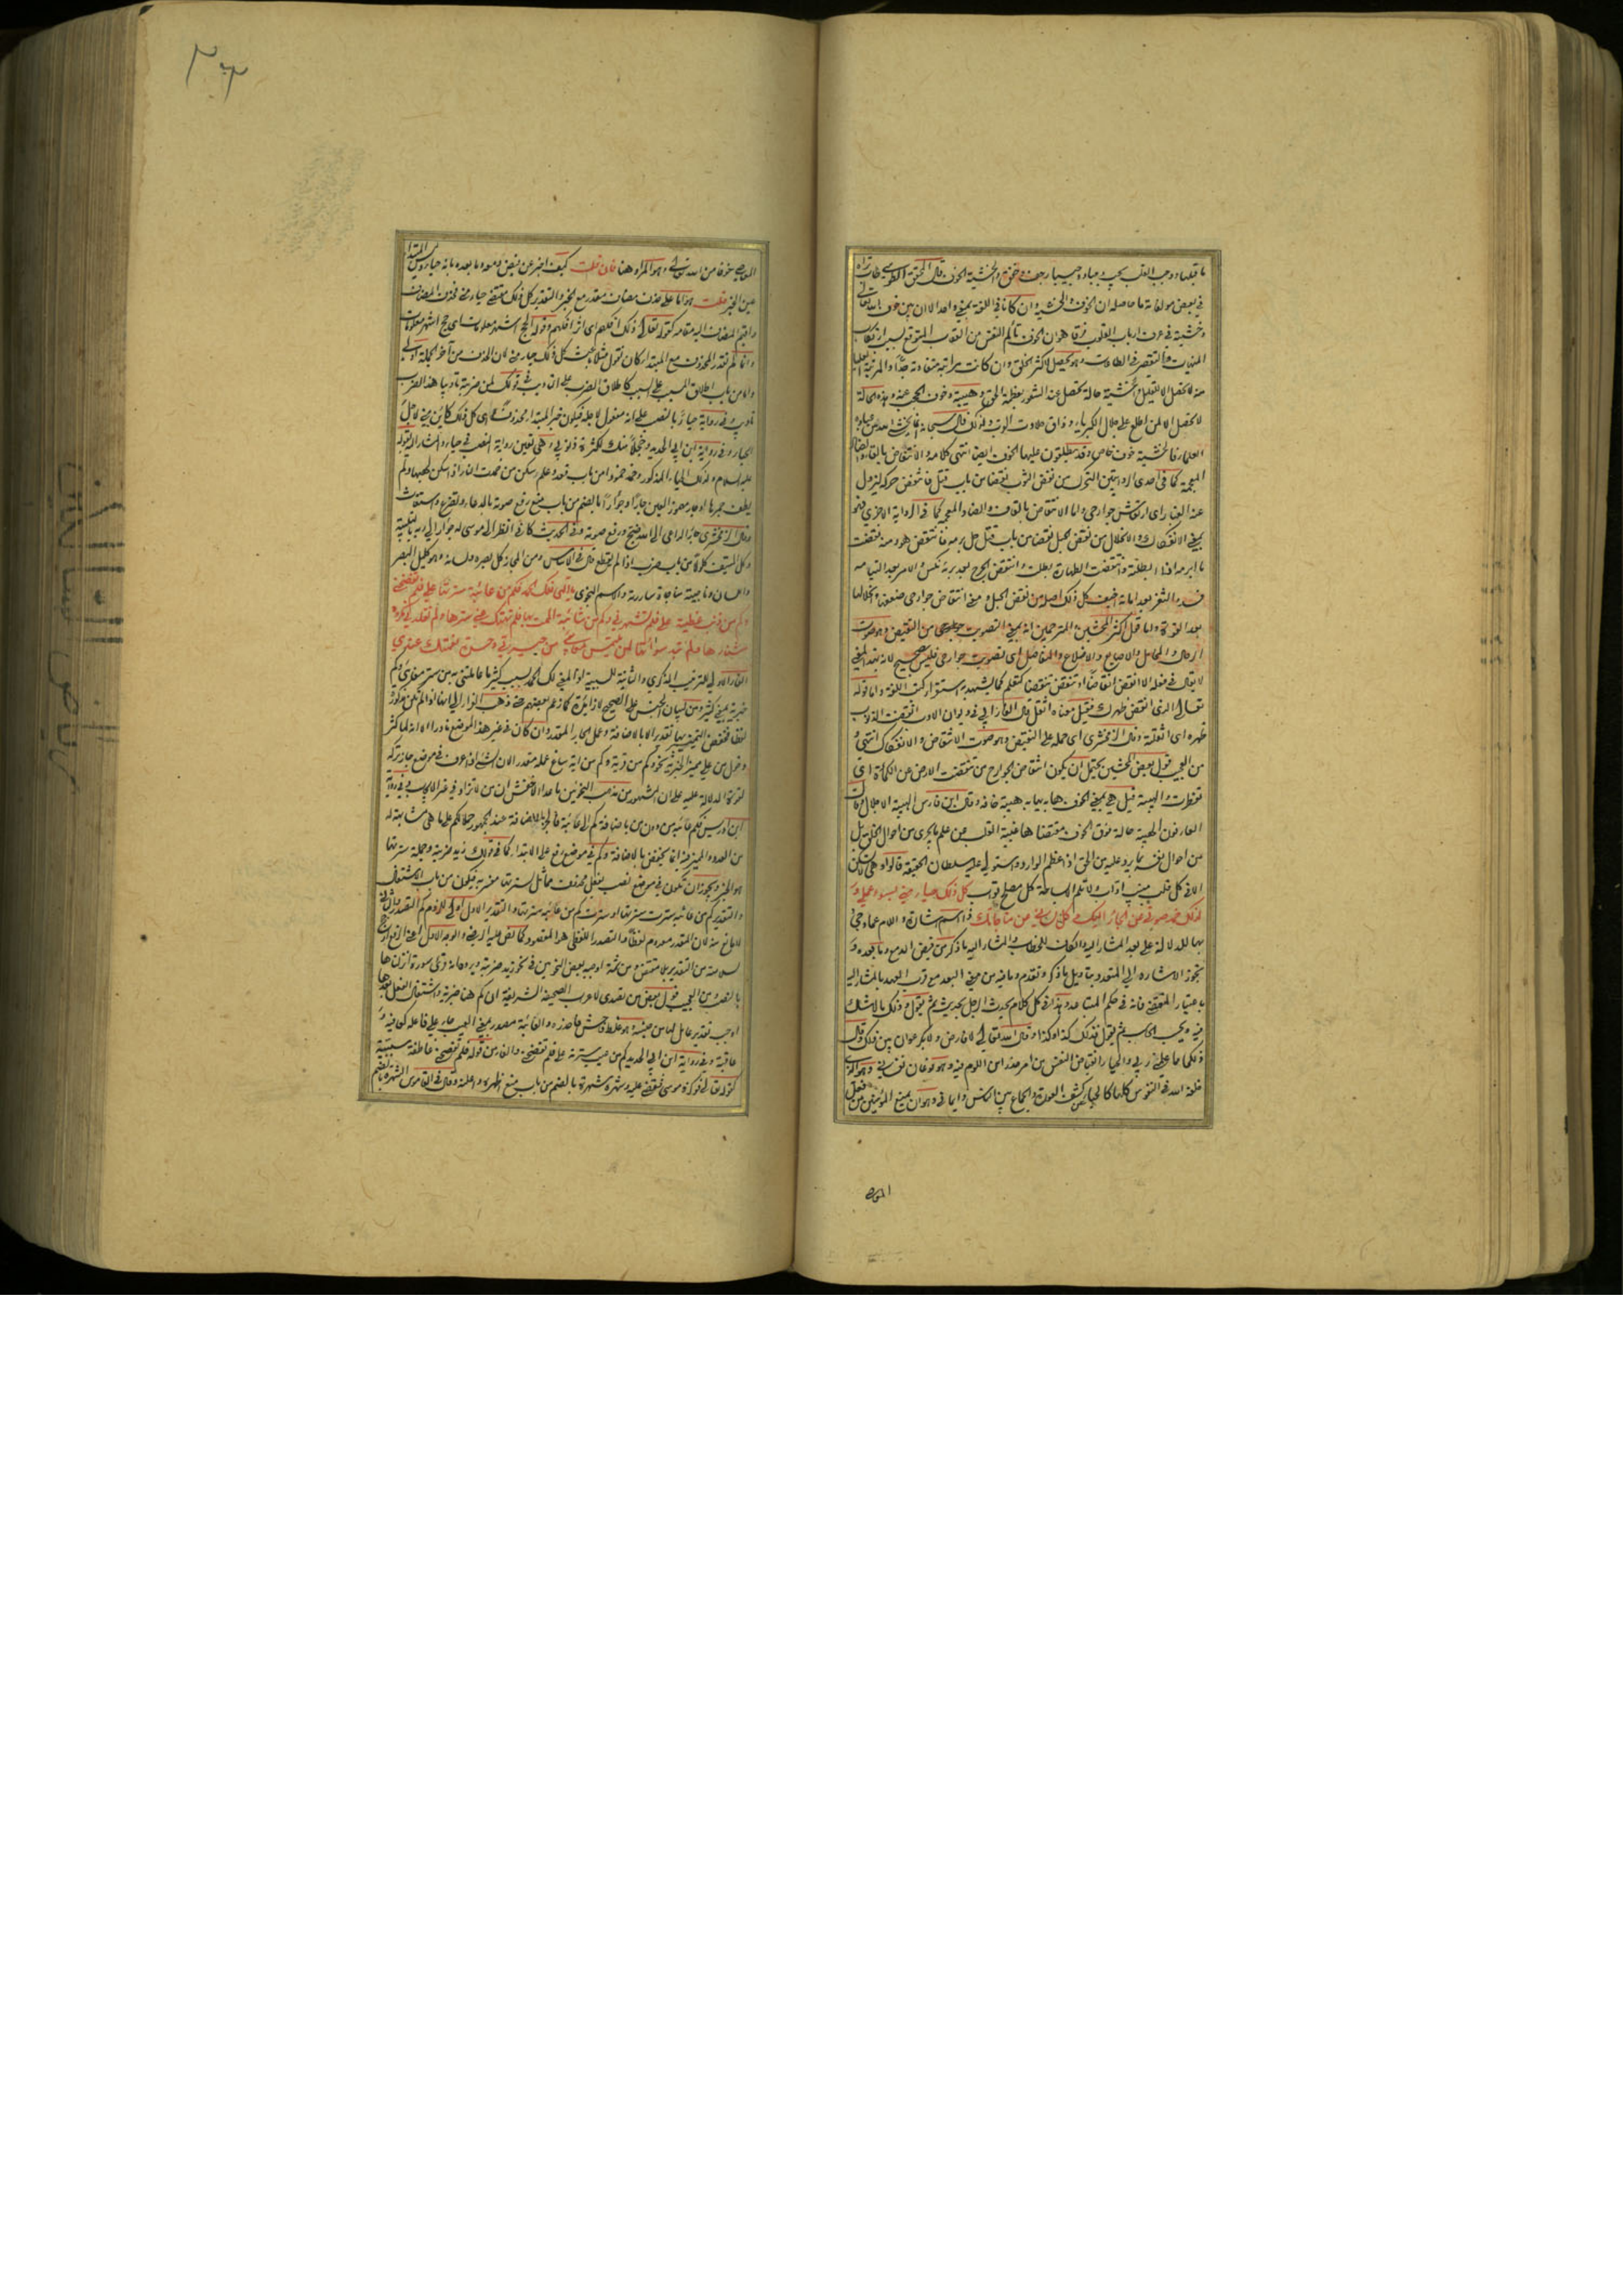 ما قبلها ووجب القلب يجب وجبا ووجيبا رجف وخفق والخشية الخوف قال المحقق الطوسي طاب ثراه
في بعض مولفاته ما حاصله ان الخوف والخشية وان كانا في اللغة بمعنى واحد الا ان بين خوف الله تعالى
وخشيته في عرف ارباب القلوب فرقا هو ان الخوف تالم النفس من العقاب المتوقع بسبب ارتكاب
المنهيات والتقصير في الطاعات وهو يحصل لاكثر الخلق وان كانت مراتبه متفاوتة جدا والمرتبة العليا
منه لا تحصل الا للقليل والخشية حالة تحصل عند الشعور بعظمة الحق وهيبته وخوف الحجب عنه وهذه الحالة
لا تحصل الا لمن اطلع على جلال الكبرياء وذاق حلاوة القرب ولذلك قال سبحانه انما يخشى الله من عباده
العلماء فالخشية خوف خاص وقد يطلقون عليها الخوف ايضا انتهى كلامه والانتفاض بالفاء والضاد
المعجمة كما في احدى الروايتين التحرك من نفض الثوب نفضا من باب قتل فانتفض حركه ليزول
عنه الغبار اى ارتعش جوارحي واما الانتقاض بالقاف والضاد المعجمة كما في الرواية الاخرى فهو
بمعنى الانفكاك والانحلال من نقض الحبل نقضا من باب قتل حل برمه فانتقض هو ومنه نقضت
ما ابرمه اذا ابطلته وانتقضت الطهارة بطلت وانتقض الجرح بعد برئه نكس والامر بعد التيامه
فسد والثغر بعد امانه اخيف كل ذلك اصله من نقض الحبل ومعنى انتقاض جوارحي ضعفها وانحلالها
بعد القوة واما قول اكثر المحشين والمترجمين انه بمعنى التصويت من النقيض وهو صوت
الرحال والمحامل والاصابع والاضلاع والمفاصل اى تصويت جوارحي فليس بصحيح لانه بهذا المعنى
لا يقال في فعله الا انقض انقاضا او تنقض تنقضا كتكلم كما يشهد به استقراء كتب اللغة واما قوله
تعالى الذى انقض ظهرك فقيل معناه اثقل قال الفارابي في ديوان الادب انقضت الذنوب
ظهره اى اثقلته وقال الزمخشرى اى حمله على النقيض وهو صوت الانتقاض والانفكاك انتهى و
من العجيب قول بعض المحشين يحتمل ان يكون انتقاض الجوارح من تنقضت الارض عن الكماة اى
تفطرت والهيبة قيل هي بمعنى الخوف هابه يهابه هيبة خافه وقال ابن فارس الهيبة الاجلال وقال
العارفون الهيبة حالة فوق الخوف مقتضاها غيبة القلب عن علم ما يجرى من احوال الخلق بل
من احوال نفسه بما يرد عليه من الحق اذا عظم الوارد واستولى عليه سلطان الحقيقة قالوا وهى
الا في كل قلب منيب اواب كل ذلك حياء منى لسوء عملي و
لذلك خمد صوتي عن الجار اليك وكل لساني عن مناجاتك ذا اسم اشارة واللام عماد جئ
بها للدلالة على بعد المشار اليه والكاف للخطاب والمشار اليه ما ذكر من فيض الدمع وما بعده و
تجوز الاشارة الى المتعدد بتاويل ما ذكر وتقدم وما فيه من معنى البعد مع قرب العهد بالمشار اليه
باعتبار المنقضى فانه في حكم المتباعد وهذا في كل كلام يحدث الرجل بحديث ثم يقول وذلك مالاشك
فيه ويحسب الحاسب ثم يقول فذلك كذا وكذا وقال الله تعالى لا فارض ولا بكر عوان بين ذلك وقال
ذلكما مما علمني ربي والحياء انقباض النفس عن امر حذرا من اللوم فيه وهو نوعان نفساني وهو الذى
خلقه الله في النفوس كلها كالحياء عن كشف العورة والجماع بين الناس وايماني وهو ان يمنع المؤمن من فعل
المعاصي
٣٠٣
المعاصي خوفا من الله تعالى وهو المراد هنا فان قلت كيف اخبر عن فيض دمعه وما بعده بانه حياء وليس المبتدا
عين الخبر قلت هو اما على حذف مضاف مقدر مع الخبر والتقدير كل ذلك مقتضى حياء منى فحذف المضاف
واقيم المضاف اليه مقامه كقوله تعالى ذلك افكهم اى اثر افكهم وقوله الحج اشهر معلومات اى حج اشهر معلومات
وانما لم نقدر المحذوف مع المبتدا وكان نقول مثلا باعث كل ذلك حياء منى لان الحذف من آخر الجملة اولى
واما من باب اطلاق المسبب على السبب كاطلاق الضرب على التاديب في قولك لمن ضربته تاديبا هذا الضرب
تاديب وفي رواية حياءً بالنصب على انه مفعول لاجله فيكون خبر المبتدا محذوف اى كل ذلك كاين منى لاجل
الحياء وفي رواية ابن ابي الحديد وخجلا منك لكثرة ذنوبي وهي تعين رواية النصب في حياء والمشار اليه بقوله
عليه السلام ولذلك الحياء المذكور وخمد خمودا من باب قعد وعلم سكن من خمدت النار اذا سكن لهبها ولم
يطف جمرها وجار مهموز العين جارا وجؤارا بالضم من باب منع رفع صوته بالدعاء وتضرع واستغاث
وقال الزمخشرى جار الداعي الى الله ضج ورفع صوته وفي الحديث كاني انظر الى موسى له جؤار الى ربه بالتلبية
وكل السيف كلولا من باب ضرب اذا لم يقطع قال في الاساس ومن المجاز كل بصره ولسانه وهو كليل البصر
واللسان وناجيته مناجاة ساررته والاسم النجوى يا الهي فلك الحمد فكم من عائبة سترتها علي فلم تفضحني
وكم من ذنب غطيته علي فلم تشهرني وكم من شائبة الممت بها فلم تهتك عني سترها ولم تقلدني مكروه
شنارها ولم تبد سوءاتها لمن يلتمس معايبي من جيرتي وحسدة نعمتك عندي
الفاء الاولى للترتيب الذكرى والثانية للسببية اذ المعنى لك الحمد بسبب كثير ما عاملتني به من ستر معايبي وكم
خبرية بمعنى كثير ومن لبيان الجنس على الصحيح لا زائدة كما زعم بعضهم حتى ذهب الفراء الى انها اذا لم تكن مذكورة
لفظا فخفض التمييز بها تقديرا لا بالاضافة وعمل الجار المقدر وان كان في غير هذا الموضع نادرا الا انه لما كثر
دخول من على مميز الخبرية نحو وكم من قرية وكم من اية ساغ عمله مقدرا لان الشئ اذا عرف في موضع جاز تركه
لقوة الدلالة عليه على ان المشهور من مذهب النحويين ما عدا الاخفش ان من لا تزاد في غير الايجاب وفي رواية
ابن ادريس فكم عائبة من دون من باضافة كم الى عائبة فالجر بالاضافة عند الجمهور حملا لكم على ما هي مشابهة له
من العدد والمميز عنه انما يخفض بالاضافة وكم في موضع رفع على الابتداء كما في قولك زيد ضربته وجملة سترتها
هو الخبر ويجوز ان تكون في موضع نصب بفعل محذوف مماثل لسترتها مفسر به فيكون من باب الاشتغال
والتقدير كم من عائبة سترت سترتها او سترت كم من عائبة سترتها والتقدير الاول اولى للزوم كم التصدر
لا مانع منه لان المقدر معدوم لفظا والتصدر اللفظي هو المقصود كما نص عليه الرضى والوجه الاول اعنى الرفع ارجح
لسلامته من التقدير بلا مقتض ومن ثمة اوجبه بعض النحويين في نحو زيد ضربته ويرده انه قرئ سورة انزلناها
بالنصب ومن العجيب قول بعض من تصدى لاعراب الصحيفة الشريفة ان كم هنا ضربته واشتغال الفعل بعدها
اوجب تقدير عامل لها من جنسه وهو غلط فاحش فاحذره والعائبة مصدر بمعنى العيب جاء على فاعله كعافية و
عاقبة وفي رواية ابن ابي الحديد كم من عيب سترته علي فلم تفضحني والفاء من قوله فلم تفضحني عاطفة سببية
كقوله تعالى فوكزه موسى فقضى عليه وشهره شهرة بالضم من باب منع اظهره واعلنه وقال في القاموس الشهرة بالضم